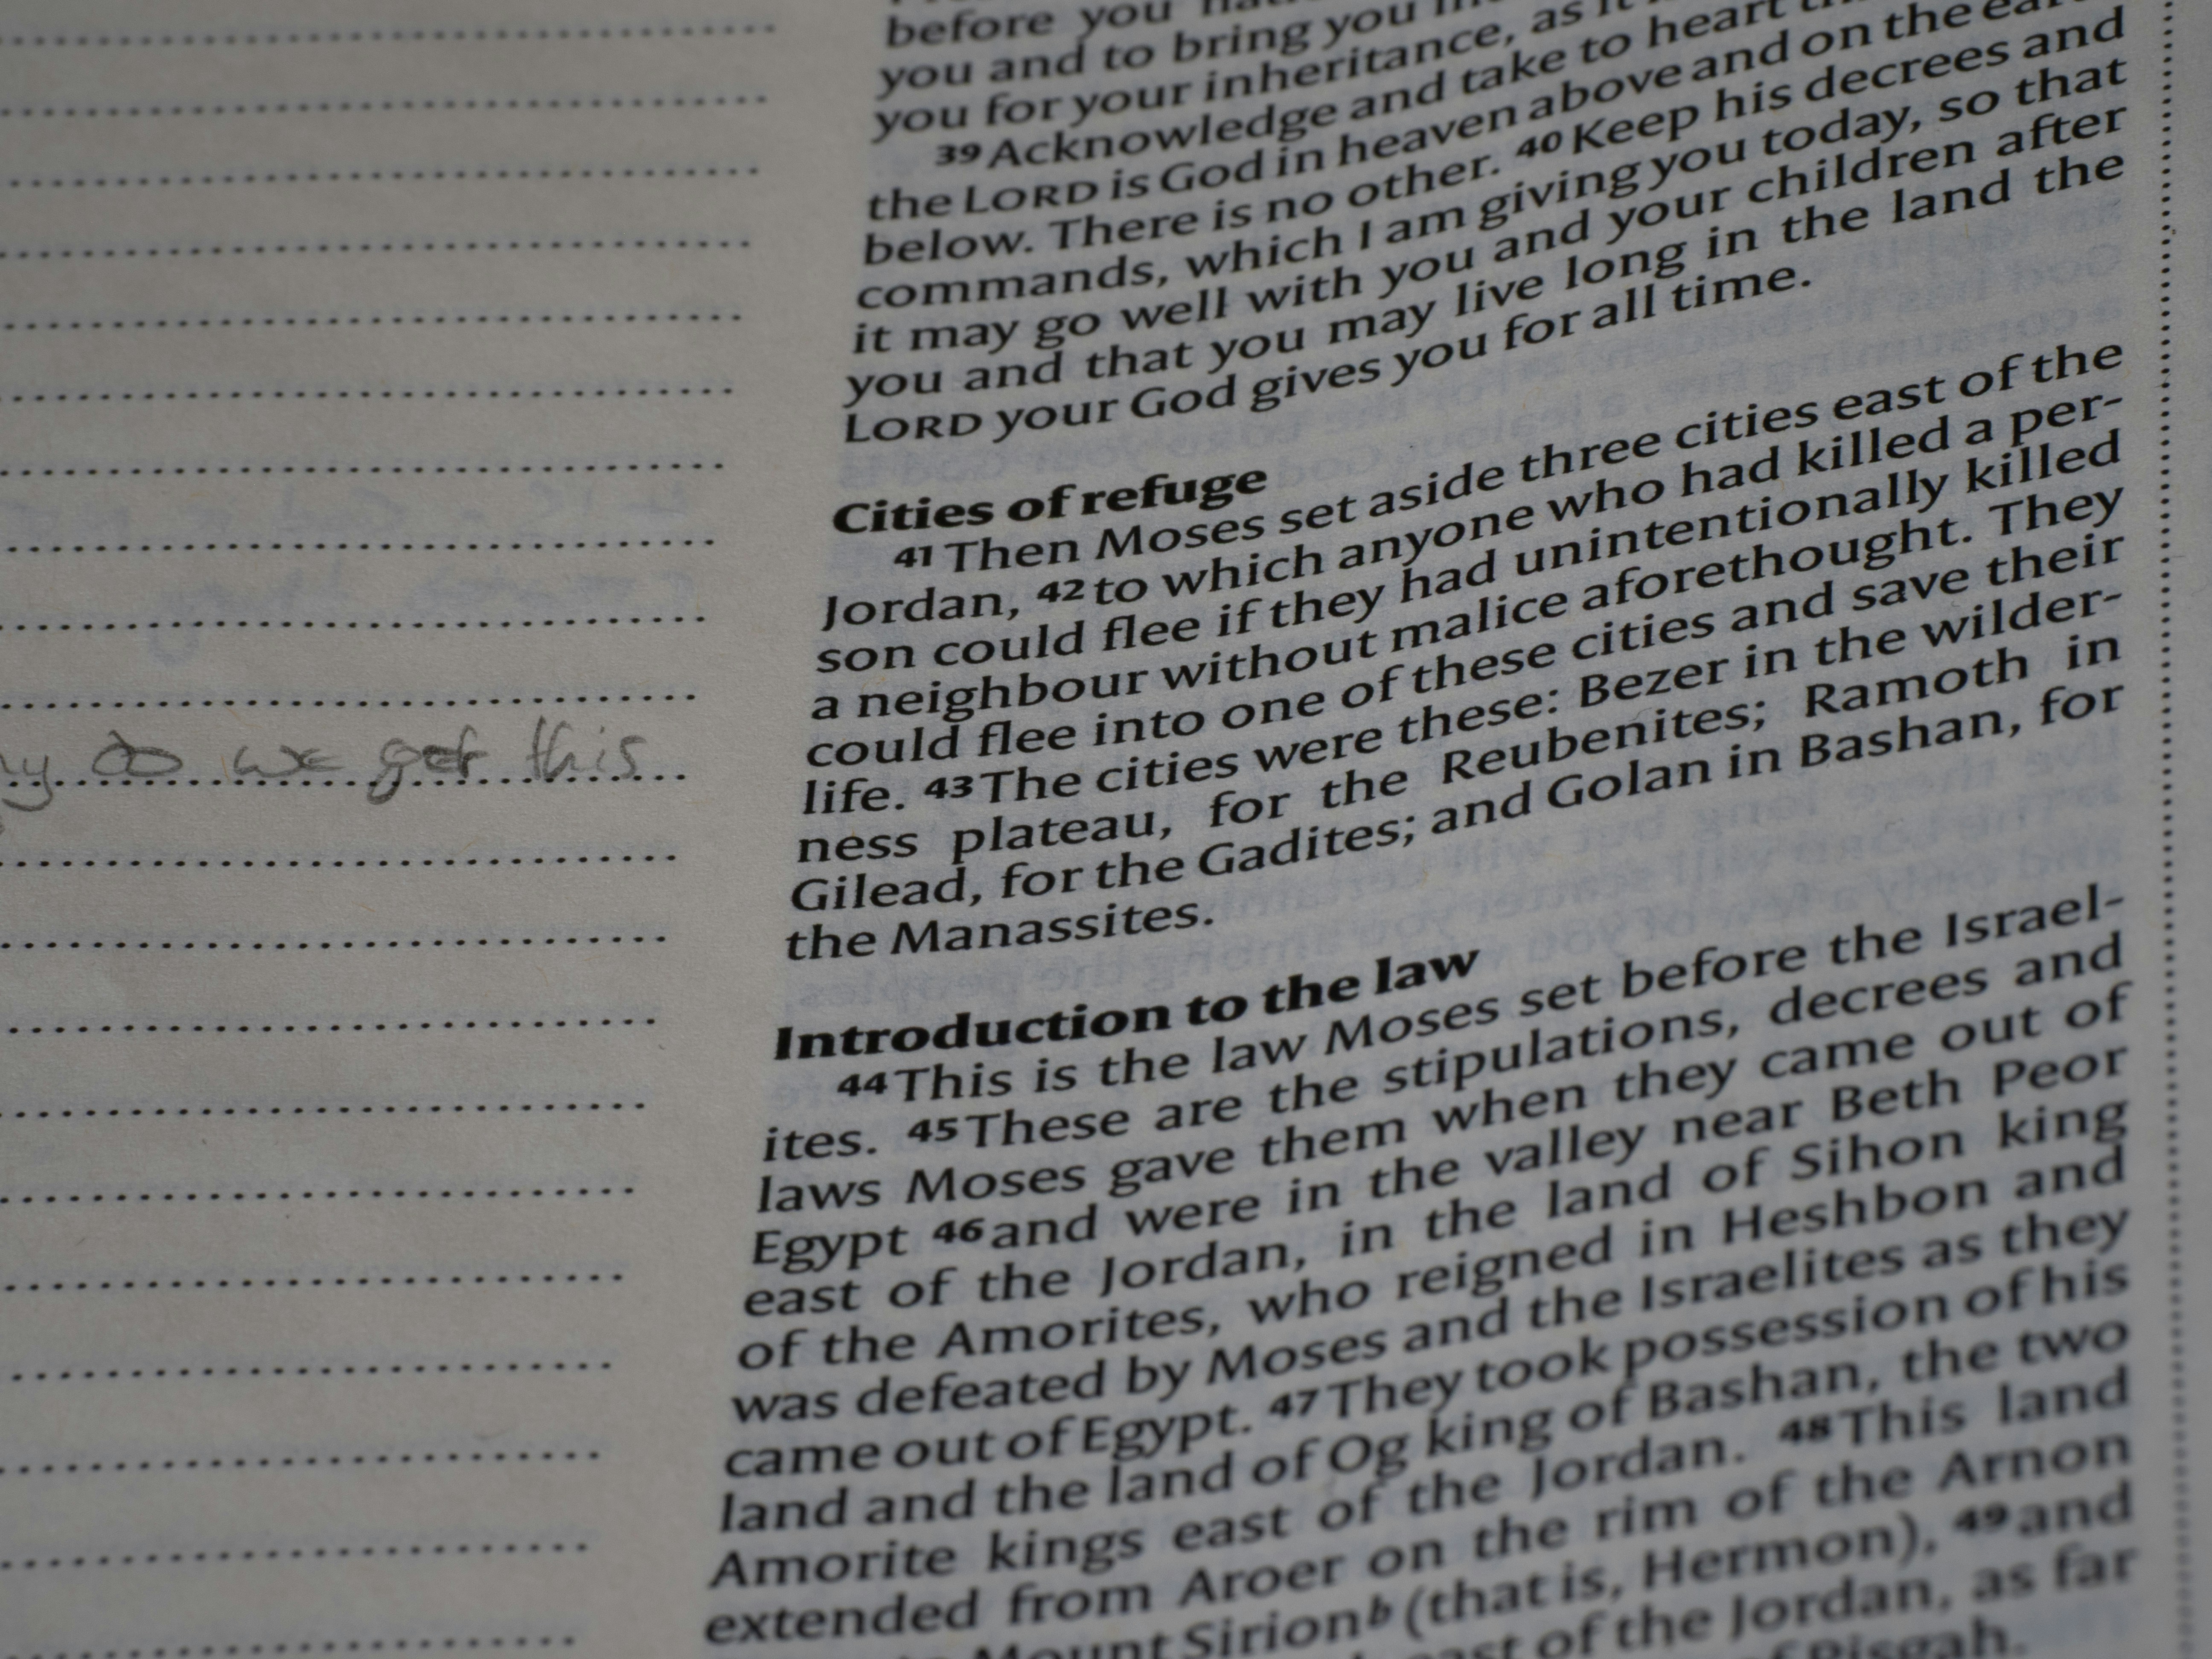 before you
you and to bring you
you for your inheritance, as it
39 Acknowledge and take to heart
the LORD is God in heaven above and on the
below. There is no other. 40 Keep his decrees and
commands, which I am giving you today, so that
it may go well with you and your children after
you and that you may live long in the land the
LORD your God gives you for all time.
Cities of refuge
41 Then Moses set aside three cities east of the
Jordan, 42 to which anyone who had killed a per-
son could flee if they had unintentionally killed
a neighbour without malice aforethought. They
could flee into one of these cities and save their
life. 43 The cities were these: Bezer in the wilder-
ness plateau, for the Reubenites; Ramoth in
Gilead, for the Gadites; and Golan in Bashan, for
the Manassites.
Introduction to the law
44 This is the law Moses set before the Israel-
ites. 45 These are the stipulations, decrees and
laws Moses gave them when they came out of
Egypt 46 and were in the valley near Beth Peor
east of the Jordan, in the land of Sihon king
of the Amorites, who reigned in Heshbon and
was defeated by Moses and the Israelites as they
came out of Egypt. 47 They took possession of his
land and the land of Og king of Bashan, the two
Amorite kings east of the Jordan. 48 This land
extended from Aroer on the rim of the Arnon
Mount Sirion b (that is, Hermon), 49 and
east of the Jordan, as far
of Pisgah.
we get this